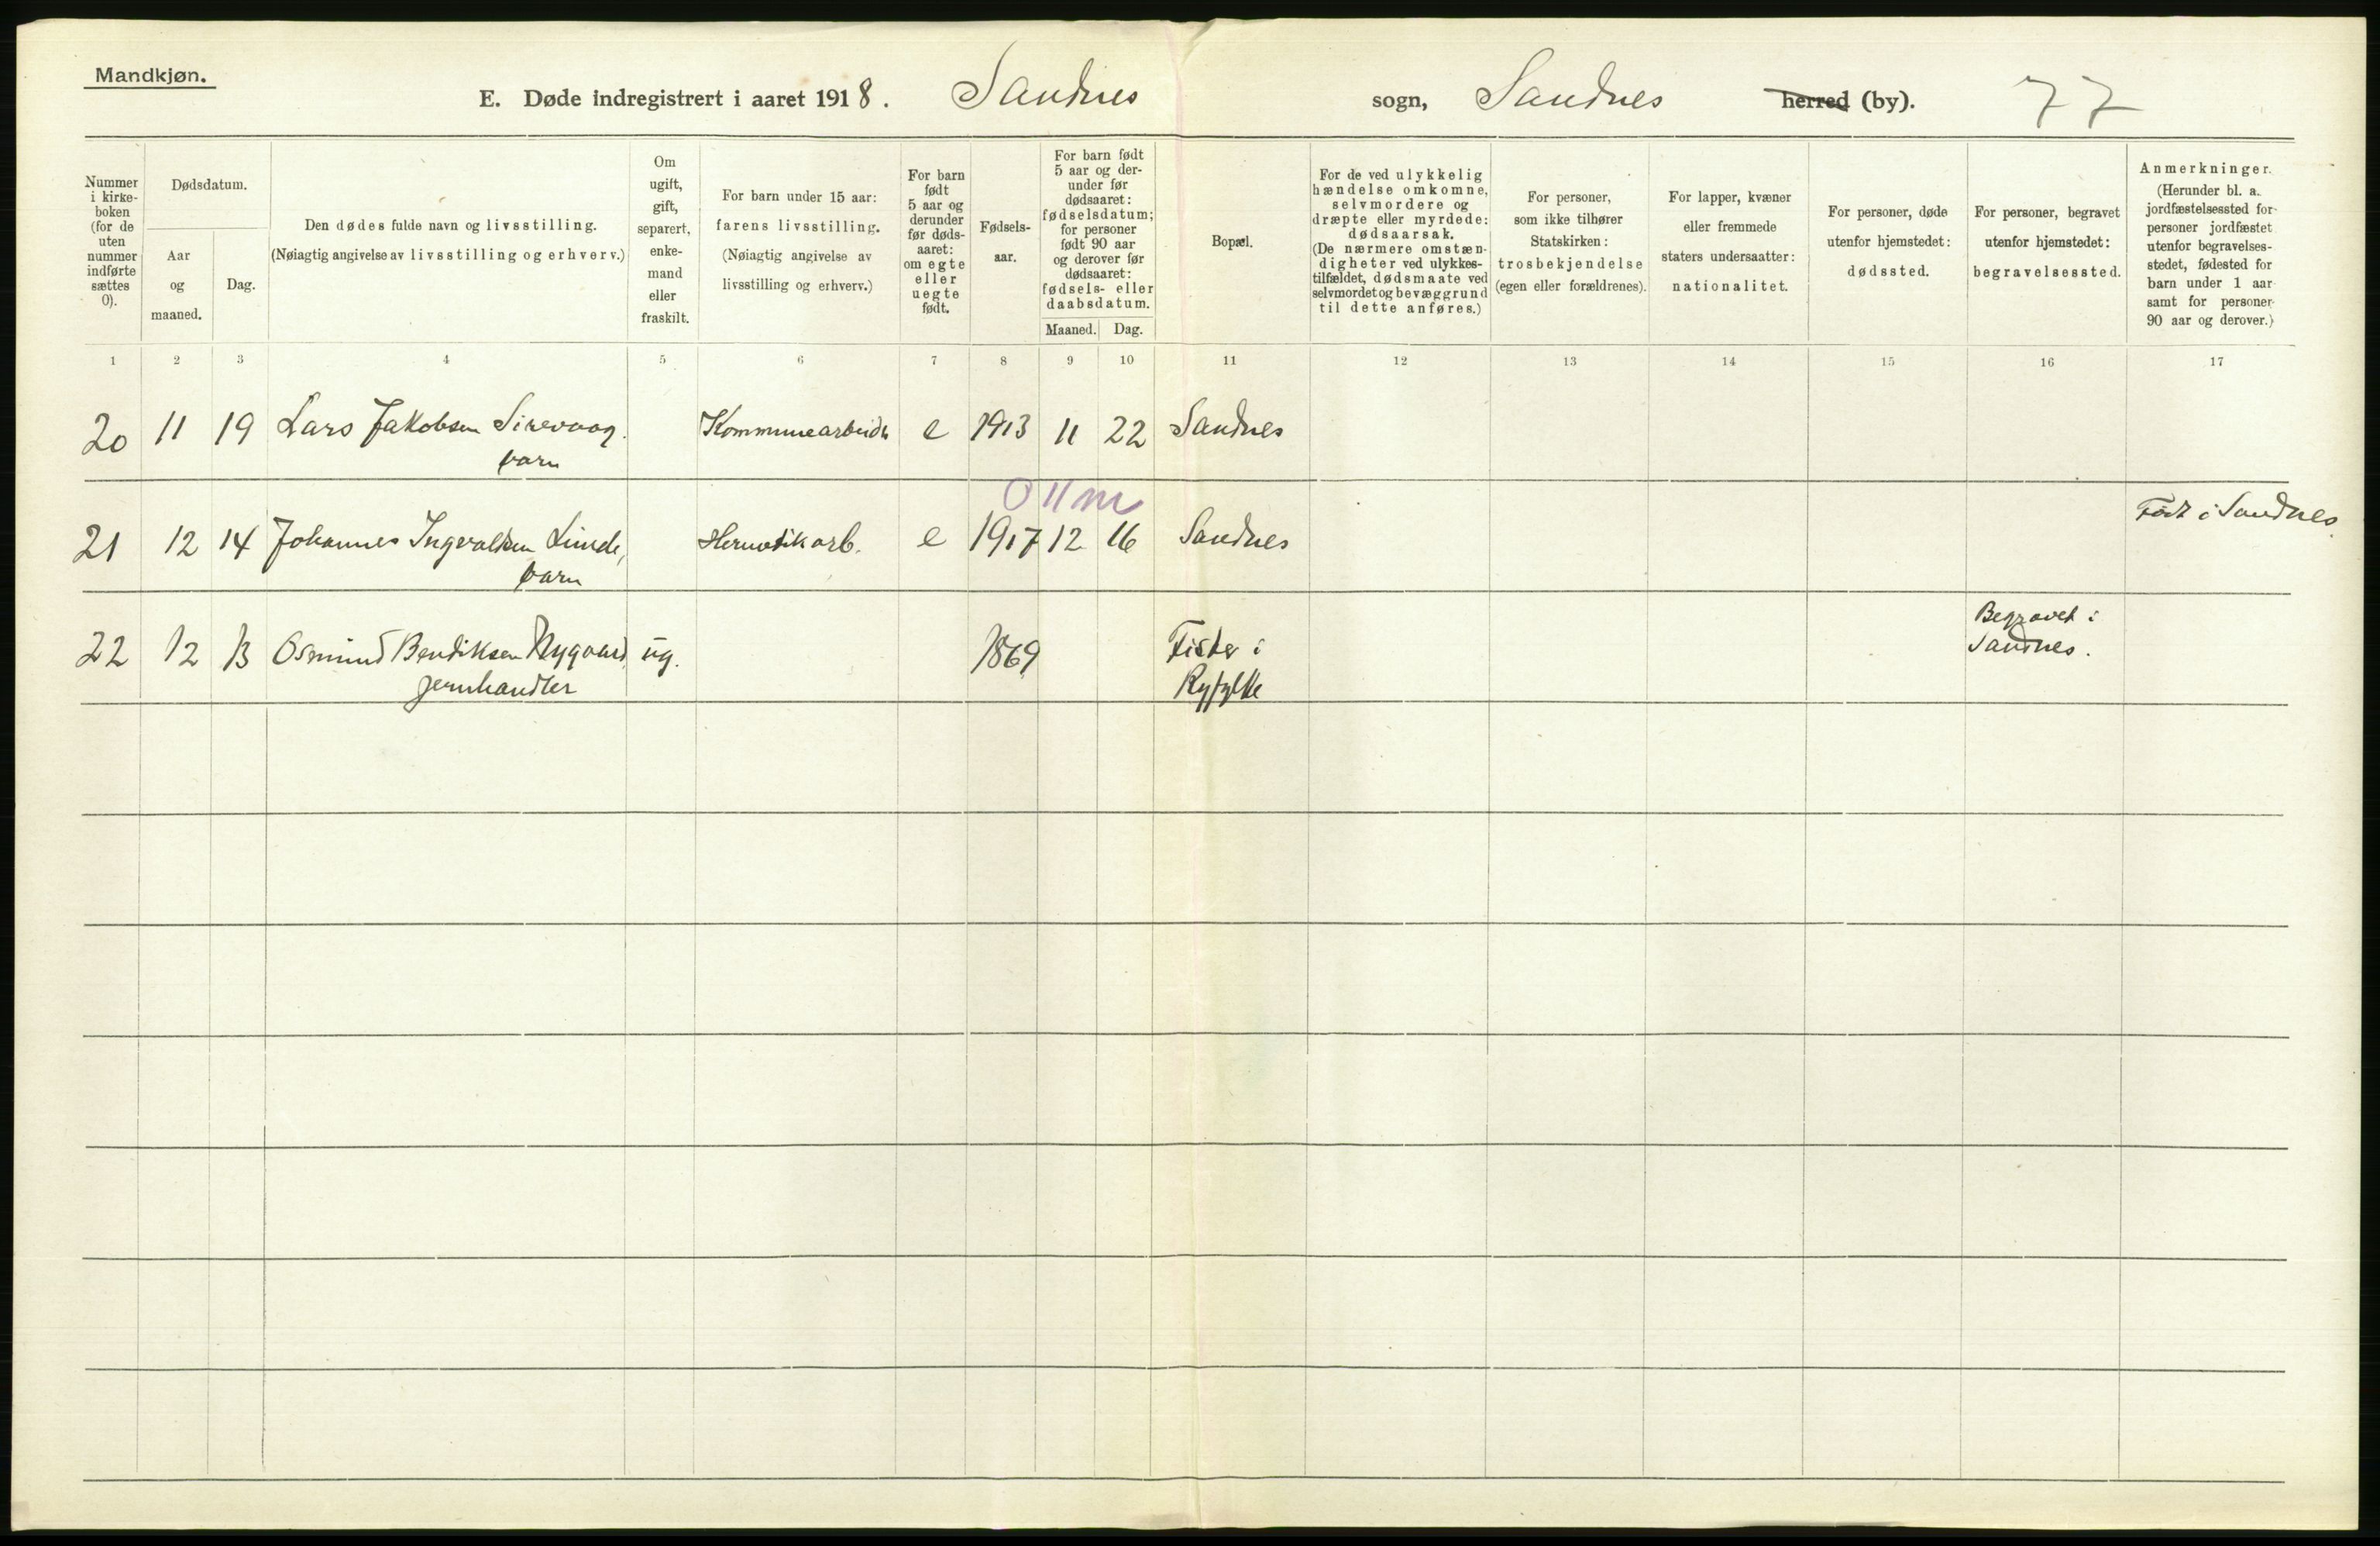 Mandkjøn.
E. Døde indregistrert i aaret 1918. Sandnes sogn, Sandnes herred (by). 77
Nummer i kirkeboken (for de uten nummer indførte sættes 0).
Dødsdatum.
Aar og maaned.
Dag.
Den dødes fulde navn og livsstilling.
(Nøiagtig angivelse av livsstilling og erhverv.)
Om ugift, gift, separert, enkemand eller fraskilt.
For barn under 15 aar:
farens livsstilling.
(Nøiagtig angivelse av livsstilling og erhverv.)
For barn født 5 aar og derunder før dødsaaret: om egte eller uegte født.
Fødselsaar.
For barn født 5 aar og derunder før dødsaaret: fødselsdatum; for personer født 90 aar og derover før dødsaaret: fødsels- eller daabsdatum.
Maaned. Dag.
Bopæl.
For de ved ulykkelig hændelse omkomne, selvmordere og dræpte eller myrdede: dødsaarsak.
(De nærmere omstændigheter ved ulykkestilfældet, dødsmaate ved selvmordet og bevæggrund til dette anføres.)
For personer, som ikke tilhører Statskirken: trosbekjendelse (egen eller forældrenes).
For lapper, kvæner eller fremmede staters undersaatter: nationalitet.
For personer, døde utenfor hjemstedet: dødssted.
For personer, begravet utenfor hjemstedet: begravelsessted.
Anmerkninger.
(Herunder bl. a. jordfæstelsessted for personer jordfæstet utenfor begravelsesstedet, fødested for barn under 1 aar samt for personer 90 aar og derover.)
1 2 3 4 5 6 7 8 9 10 11 12 13 14 15 16 17
20 11 19 Lars Jakobsen Sirevaag. Kommunearbeider e 1913 11 22 Sandnes
barn
0 11 m
21 12 14 Johannes Ingvaldsen Linde, Hermetikarb. e 1917 12 16 Sandnes Født i Sandnes.
barn
22 12 13 Osmund Bendiksen Nygaard ug. 1869 Fister i Begravet i
jernhandler Ryfylke Sandnes.